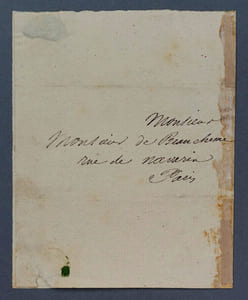 Monsieur
Monsieur de Beauchesne
rue de navarin
Paris